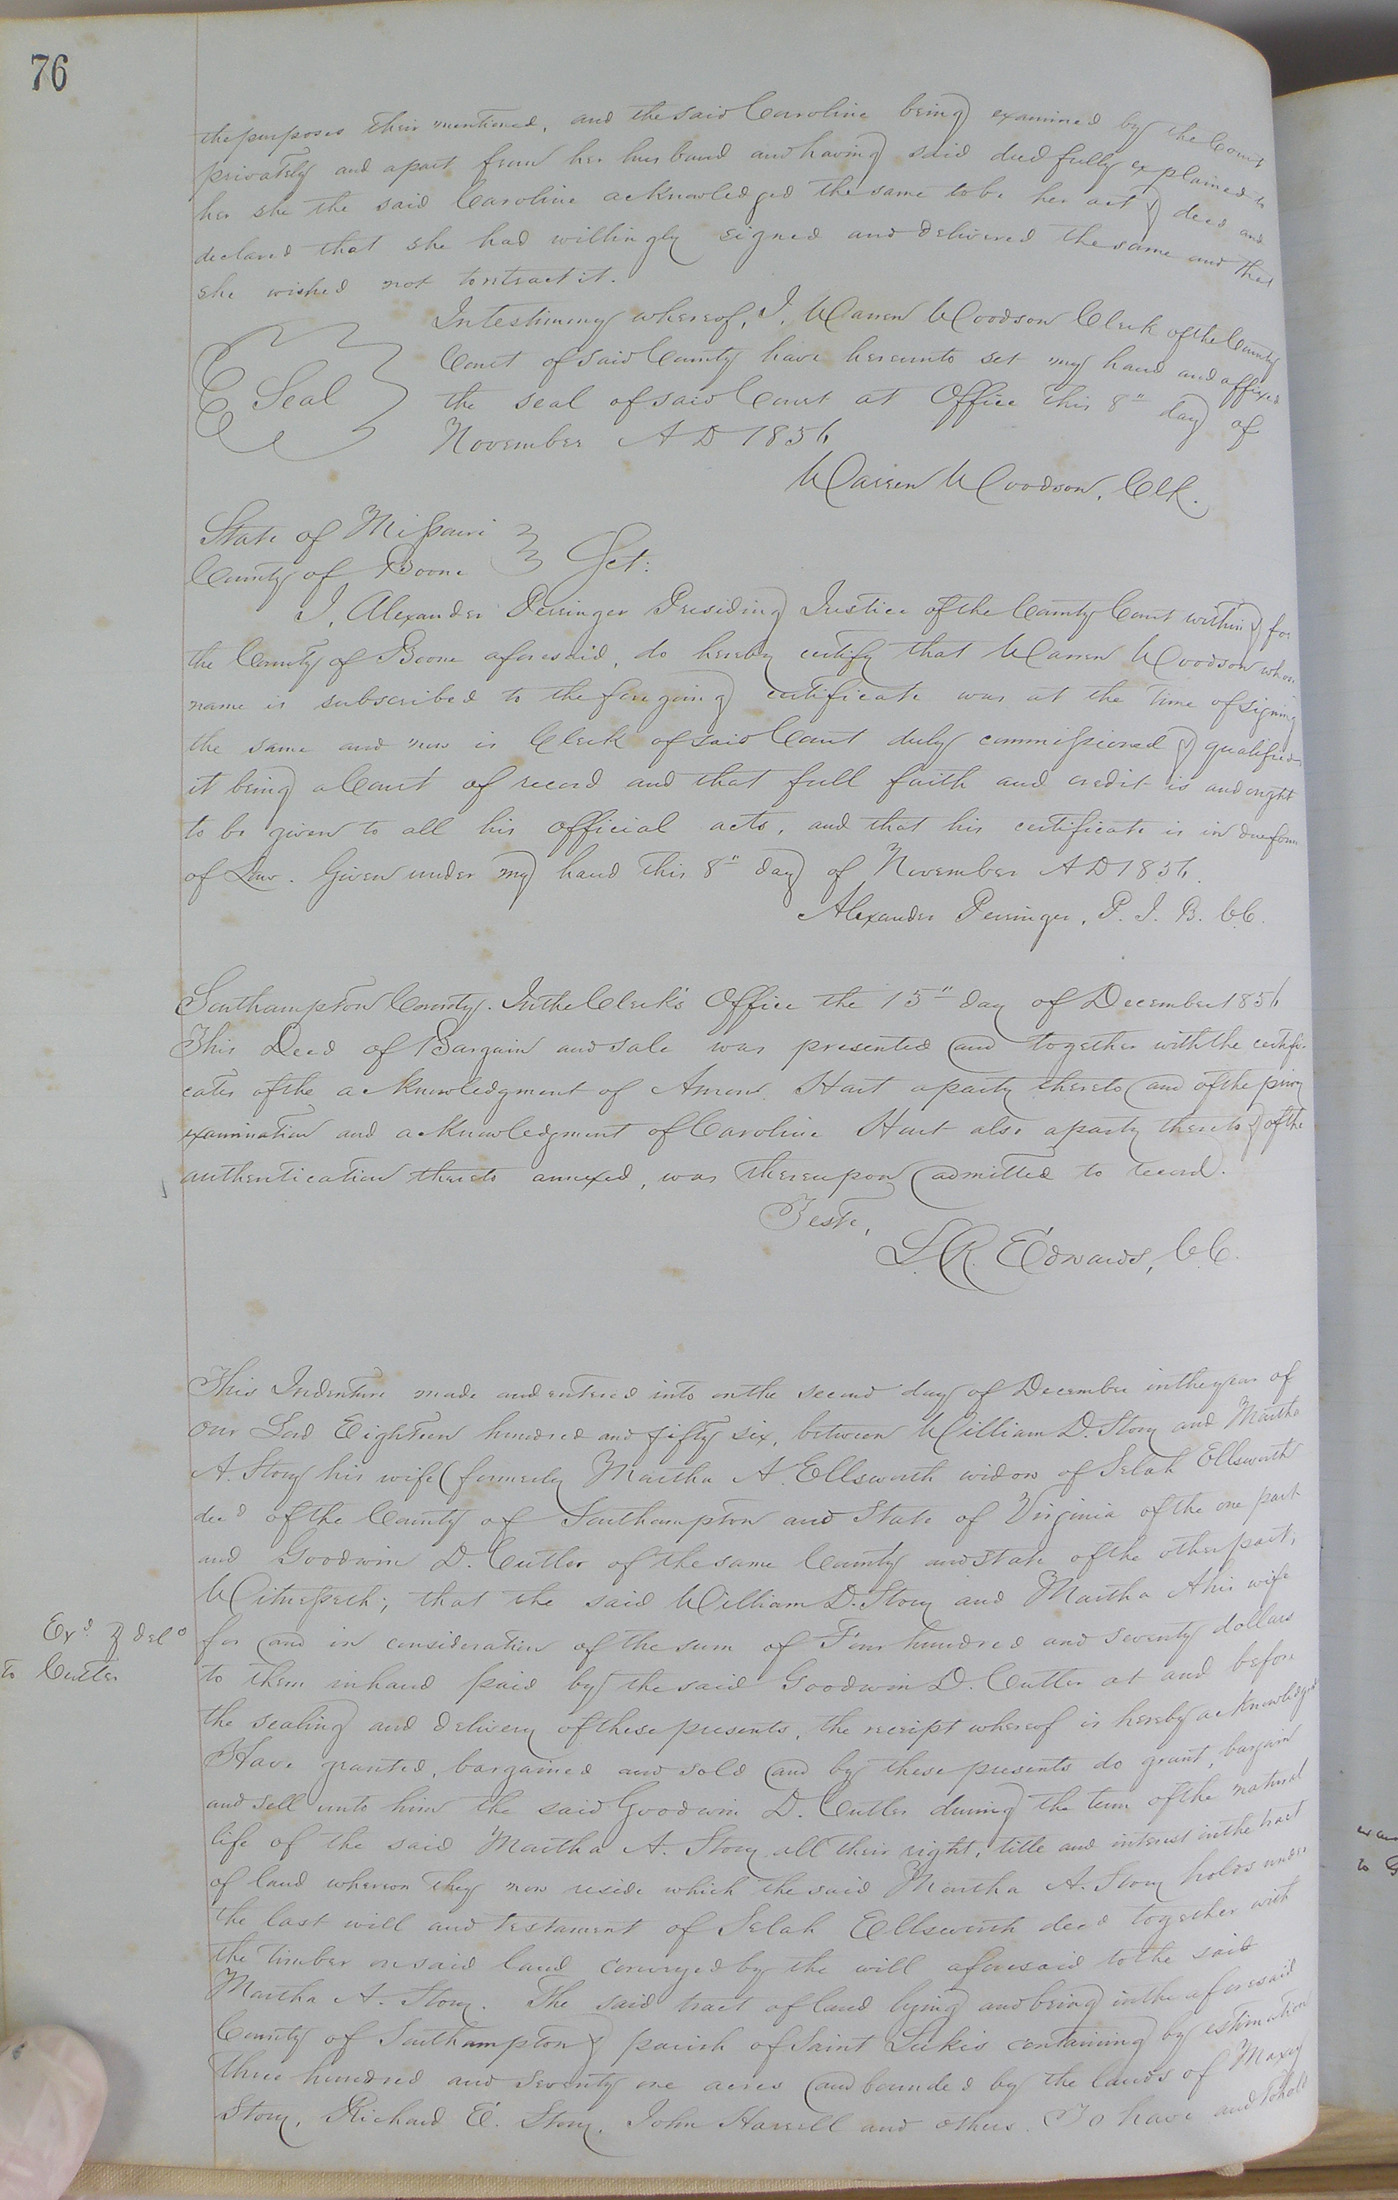 76
the purposes their mentioned, and the said Caroline being examined by the Court
privately and apart from her husband and having said deed fully explained to
her she the said Caroline acknowledged the same to be her act & deed and
declared that she had willingly signed and delivered the same and that
she wished not to retract it.
In testimony whereof, I, Warren Woodson Clerk of the County
Court of said County have hereunto set my hand and affixed
Seal
the seal of said Court at Office this 8" day of
November A D 1856
Warren Woodson, Clk.
State of Missouri
County of Boone } Sct:
I, Alexander Persinger Presiding Justice of the County Court within & for
the County of Boone aforesaid, do hereby certify that Warren Woodson whose
name is subscribed to the foregoing certificate was at the time of signing
the same and now is Clerk of said Court duly commissioned & qualified
it being a Court of record and that full faith and credit is and ought
to be given to all his official acts, and that his certificate is in due form
of Law. Given under my hand this 8" day of November A D 1856.
Alexander Persinger, P. J. B. CC.
Southampton County. In the Clerk's Office the 15" day of December 1856
This Deed of Bargain and sale was presented and together with the certifi-
cates of the acknowledgment of Hart a party thereto and of the privy
examination and acknowledgment of Caroline Hart also a party thereto & of the
authentication thereto annexed, was thereupon admitted to record.
Teste,
L. R. Edwards, CC.
This Indenture made and entered into on the second day of December in the year of
our Lord Eighteen hundred and fifty six, between William D. Story and Martha
A. Story his wife (formerly Martha A. Ellsworth widow of Selah Ellsworth
decd of the County of Southampton and State of Virginia of the one part
and Goodwin D. Cutler of the same County and State of the other part;
Witnesseth; that the said William D. Story and Martha A his wife
Exd & deld
to Cutler
for and in consideration of the sum of Four hundred and seventy dollars
to them in hand paid by the said Goodwin D. Cutler at and before
the sealing and delivery of these presents, the receipt whereof is hereby acknowledged
Have granted, bargained and sold and by these presents do grant, bargain
and sell unto him the said Goodwin D. Cutler during the term of the natural
life of the said Martha A. Story all their right, title and interest in the tract
of land whereon they now reside which the said Martha A. Story holds under
the last will and testament of Selah Ellsworth decd together with
the timber on said land conveyed by the will aforesaid to the said
Martha A. Story. The said tract of land lying and being in the aforesaid
County of Southampton & parish of Saint Luke's containing by estimation
three hundred and seventy one acres and bounded by the lands of Maxey
Story, Richard E. Story, John Harrell and others. To have and to hold